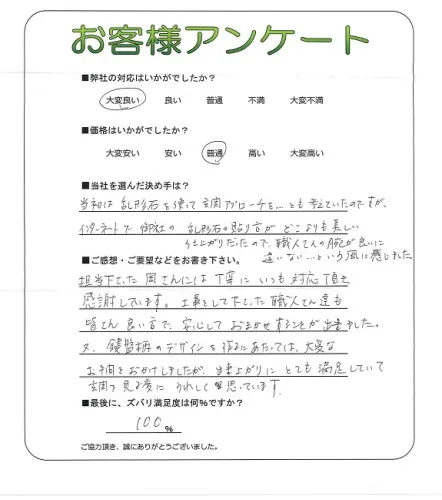 お客様アンケート
■弊社の対応はいかがでしたか?
大変良い 良い 普通 不満 大変不満
■価格はいかがでしたか?
大変安い 安い 普通 高い 大変高い
■当社を選んだ決め手は?
当初は乱形石を使って玄関アプローチを…とも考えていたのですが、
インターネットで御社の乱形石の貼り方がどこよりも美しい
仕上がりだったので、職人さんの腕が良いに
違いない…という風に感じました
■ご感想・ご要望などをお書き下さい。
担当下さった岡さんには丁寧にいつも対応頂き
感謝しています。工事をして下さった職人さん達も
皆さん良い方で、安心しておまかせすることが出来ました。
又、鏡盤柄のデザインを するにあたっては、大変な
お手間をおかけしましたが、出来上がりにとても満足していて
玄関を見る度にうれしく思っています。
■最後に、ズバリ満足度は何%ですか?
100 %
ご協力頂き、誠にありがとうございました。